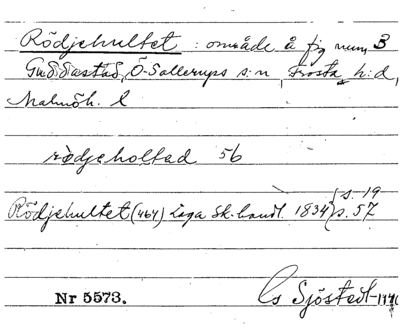 Rödjehultet : område å fig num 3
Guddastad, Ö-Sallerups s:n, Frosta h:d,
Malmöh. l
rödjeholtad 56
{s. 19
Rödjehultet (464) Laga Sk.handl. 1834 {s. 57
Nr 5573.
Gs Sjöstedt